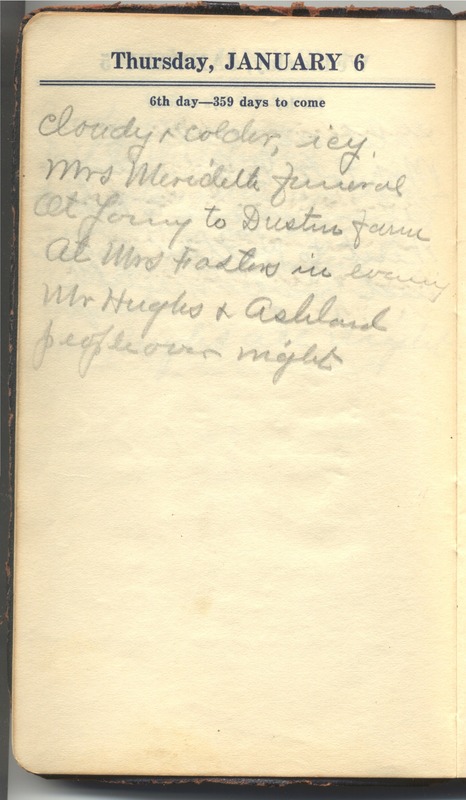 Thursday, JANUARY 6
6th day—359 days to come
cloudy & colder, icy.
Mrs Merideth funeral
At to Dustin farm
At Mrs Fosters in evening
Mr Hughs & Ashland
people over night